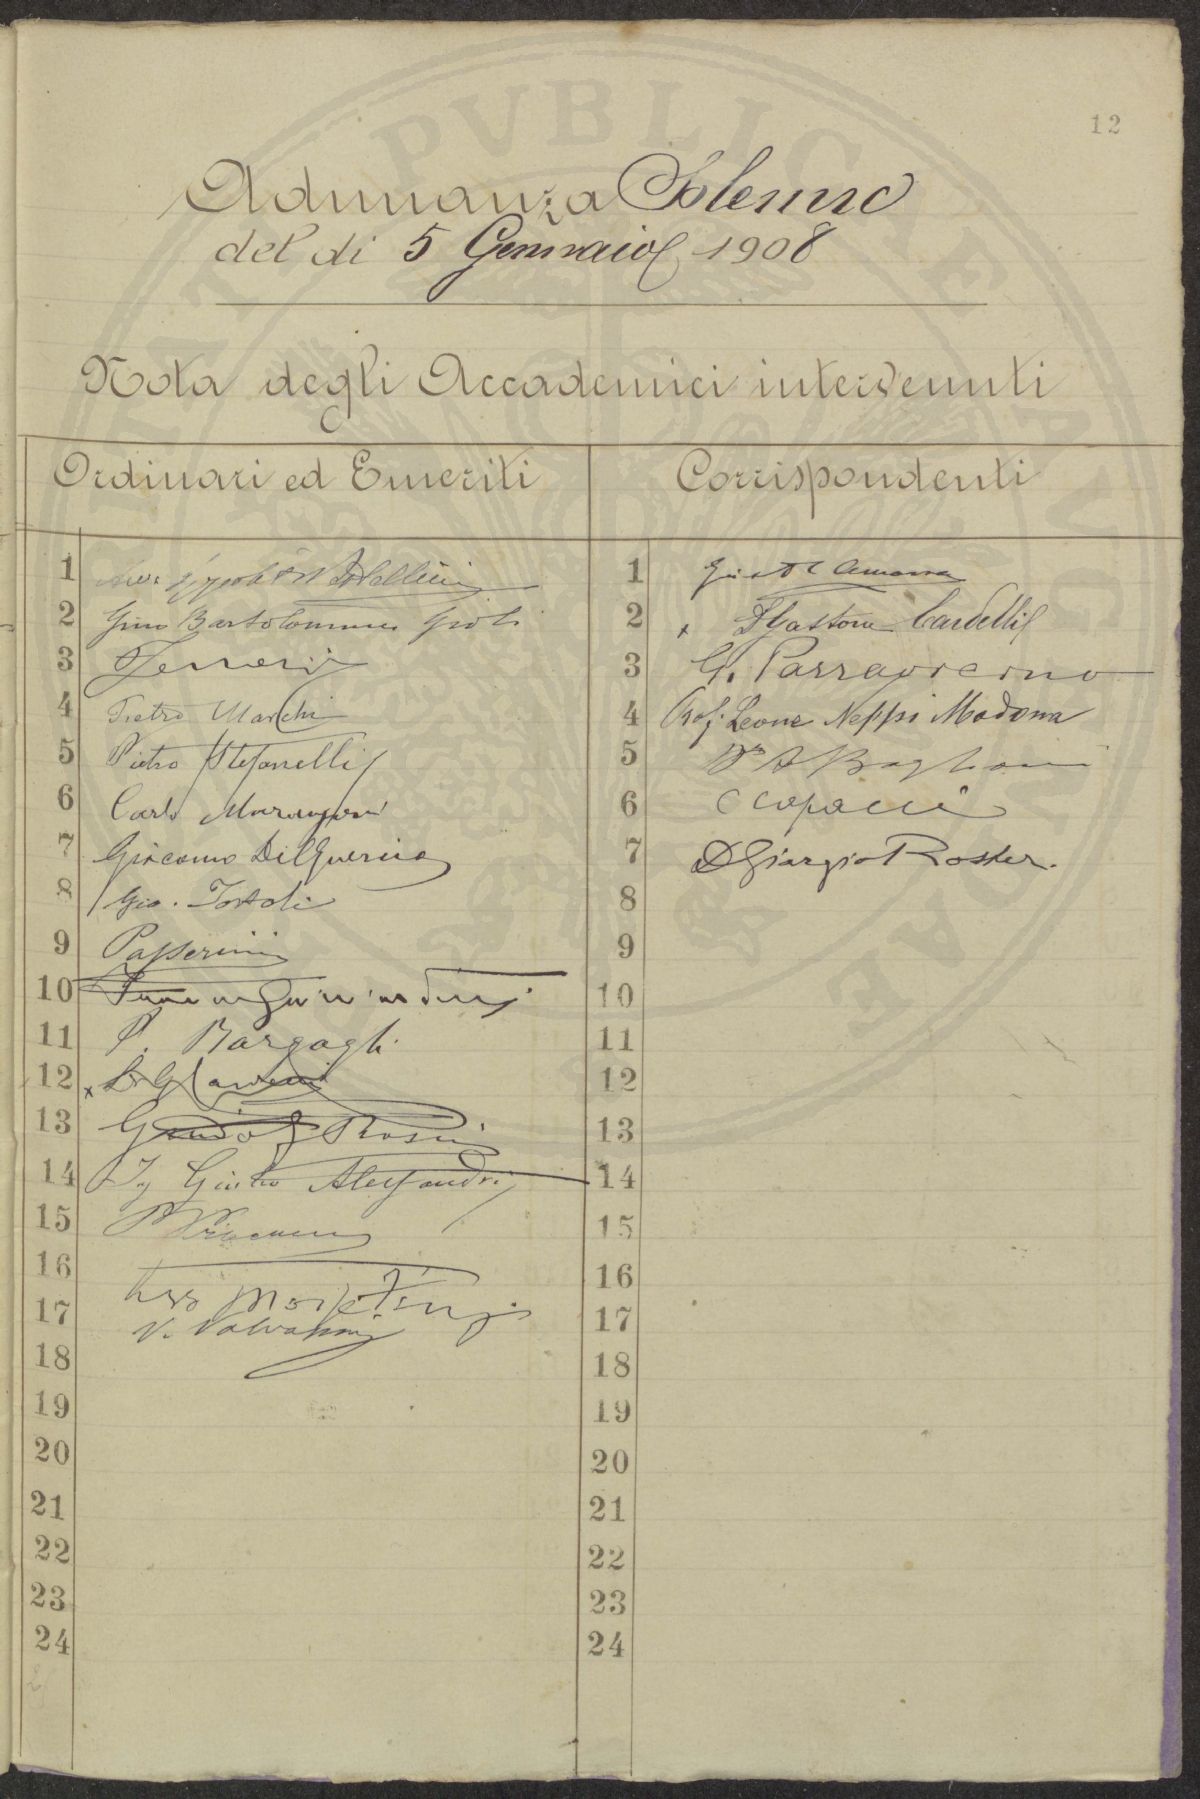 12
Adunanza Solenne
del dì 5 Gennaio 1908
Nota degli Accademici intervenuti
Ordinari ed Emeriti
1
2 Gino Bartolommei Gioli
3
4 Pietro Marchi
5 Pietro Stefanelli
6 Carlo Marangoni
7 Giacomo Del Guercio
8 Gio. Tortoli
9 Passerini
10
11 P. Bargagli
12 x
13 Guido Rosini
14 Ing Giulio Alessandri
15
16
17
18
19
20
21
22
23
24
Corrispondenti
1
2 x D Gastone Cardelli
3 G. Parravicino
4 Prof. Leone Neppi Modona
5 Dr A Baglioni
6 C Capacci
7 D Giorgio Roster.
8
9
10
11
12
13
14
15
16
17
18
19
20
21
22
23
24
PVBLICAE